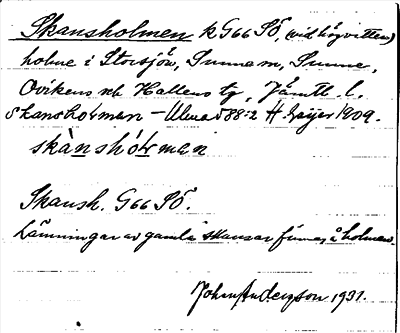 Skansholmen k G66 SÖ, (vid högvatten)
holme i Storsjön, Sunne sn, Sunne,
Ovikens och Hallens tg, Jämtl. l.
Skansholman – Ulma 588:2 H. Geijer 1909.
skànshól̀man
Skansh. G66 SÖ.
Lämningar av gamla skansar finnas å holmen.
Johan Anderzon 1931.